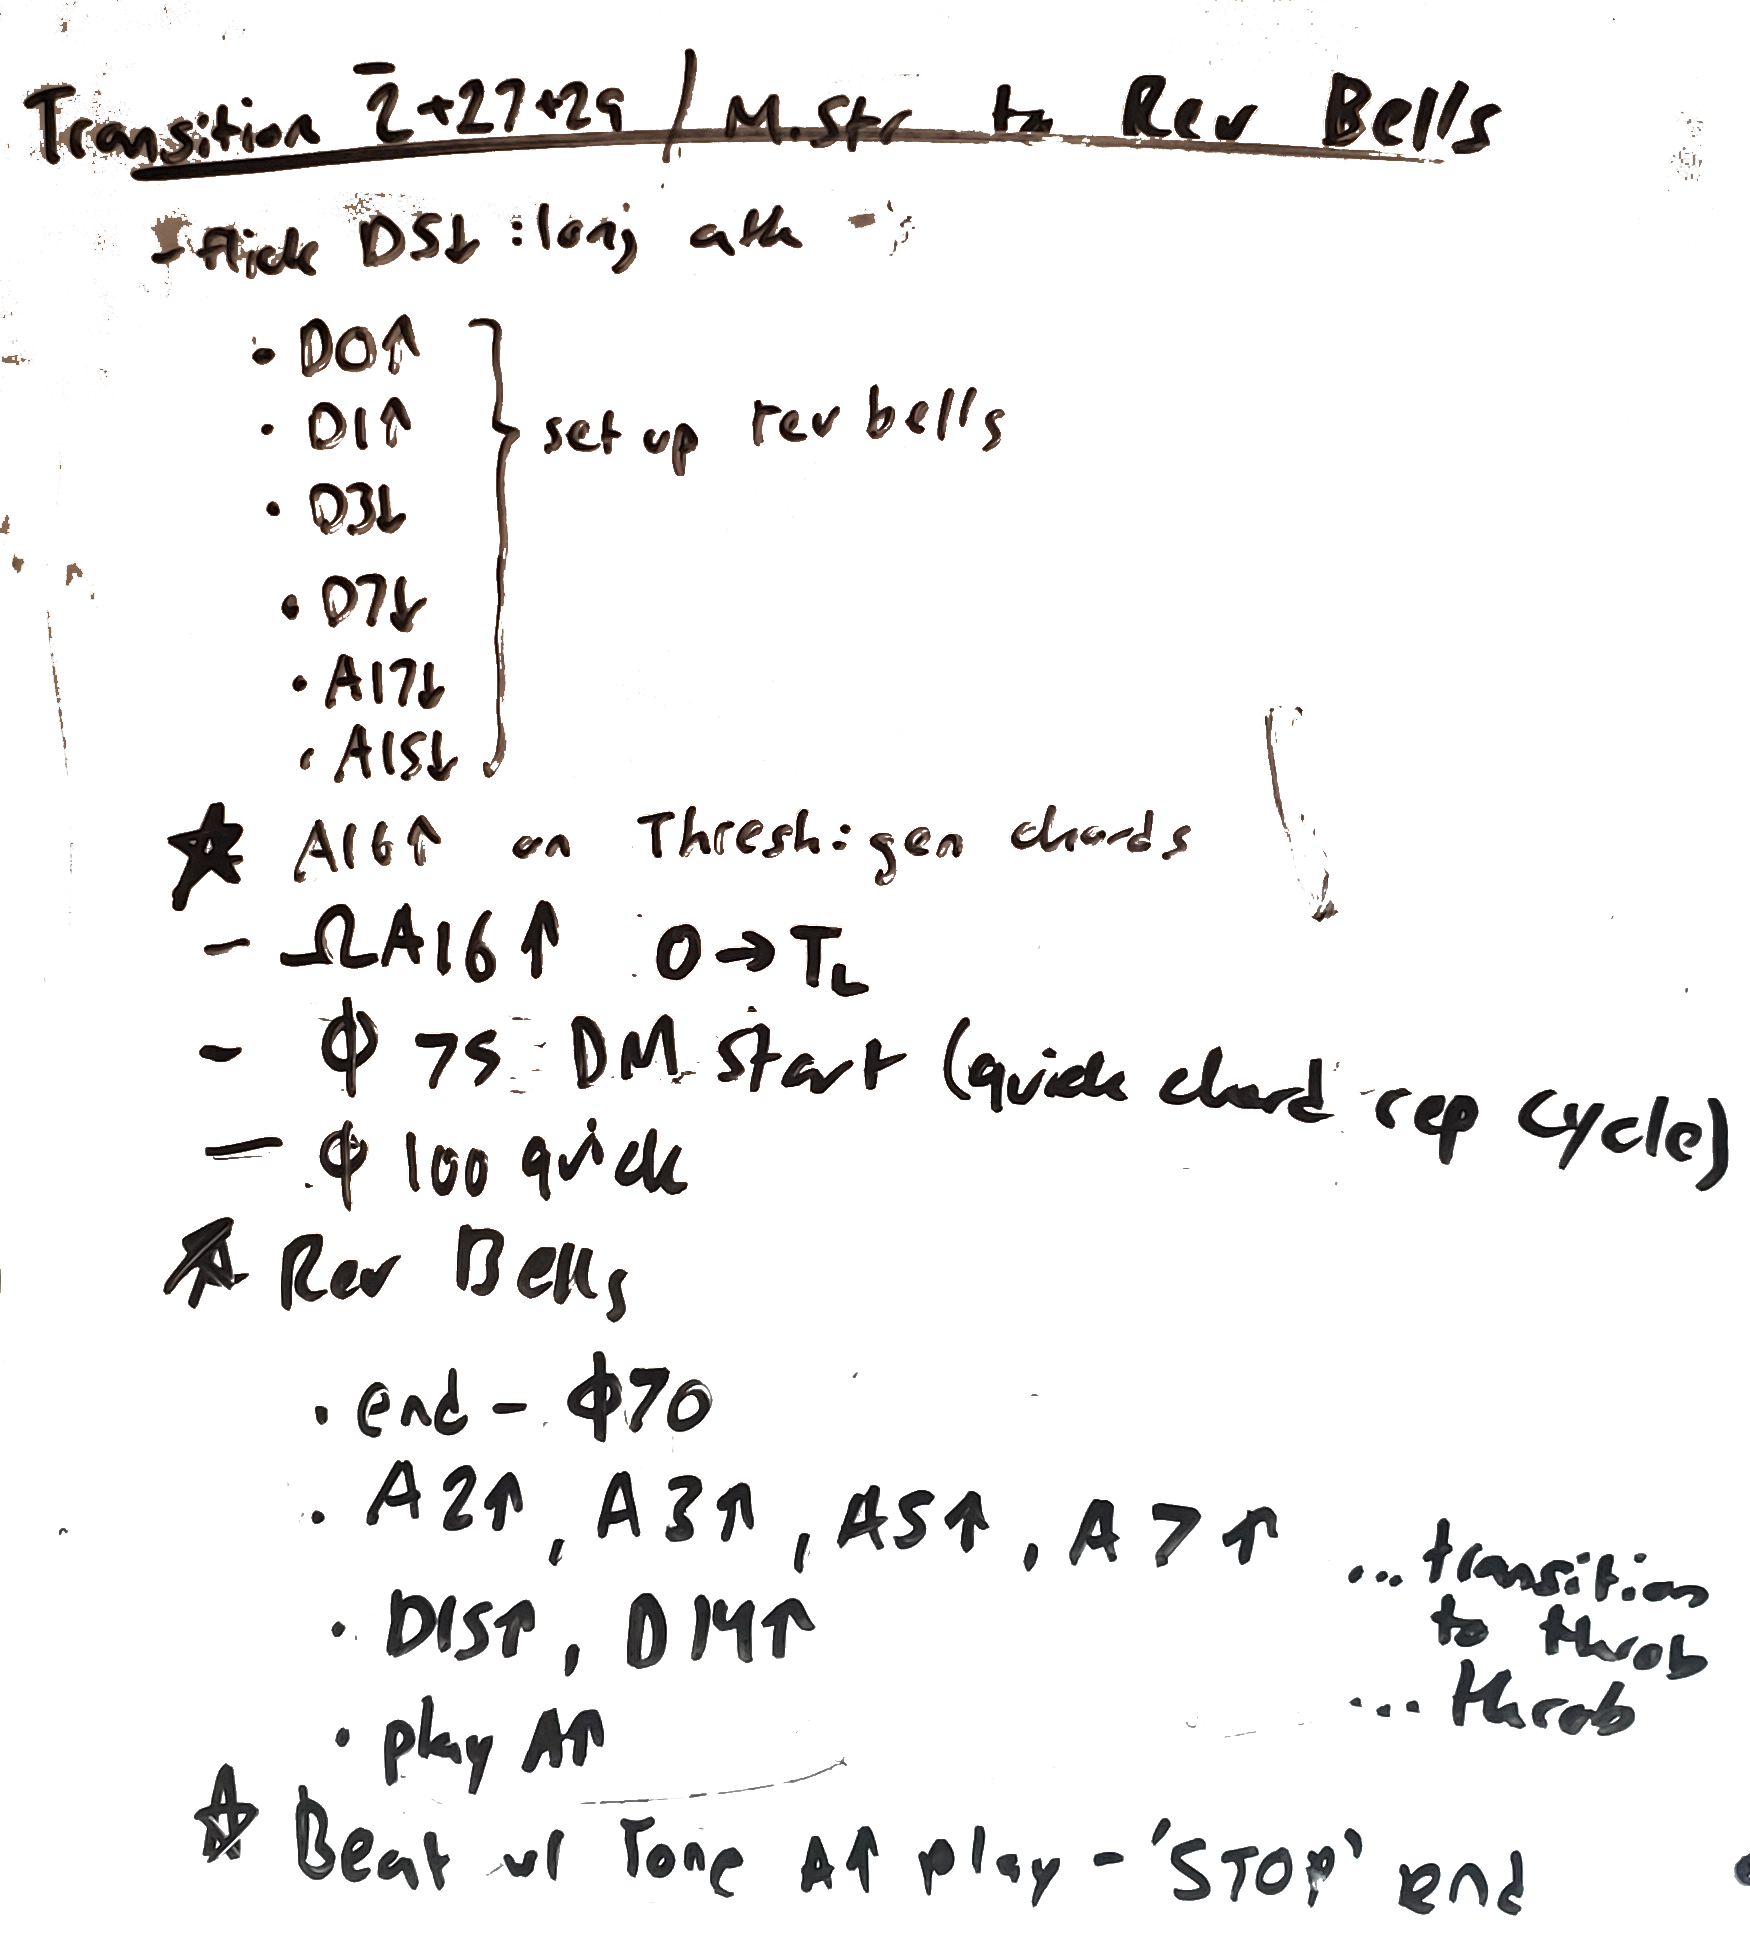 Transition 2̄+27+29 / M.Str to Rev Bells
- flick D5↓ : long atk -
• D0↑
• D1↑
• D3↓
• D7↓
• A17↓
• A15↓
} set up rev bells
★ A16↑ on Thresh: gen chords
- ΩA16↑ 0→T_L
- ϕ 75 - DM start (quick chord rep cycle)
- ϕ 100 quick
★ Rev Bells
• end - ϕ70
• A2↑, A3↑, A5↑, A7↑
...transition
to throb
• D15↑, D14↑
... throb
• play A↑
★ Beat w/ Tone A↑ play - 'STOP' end